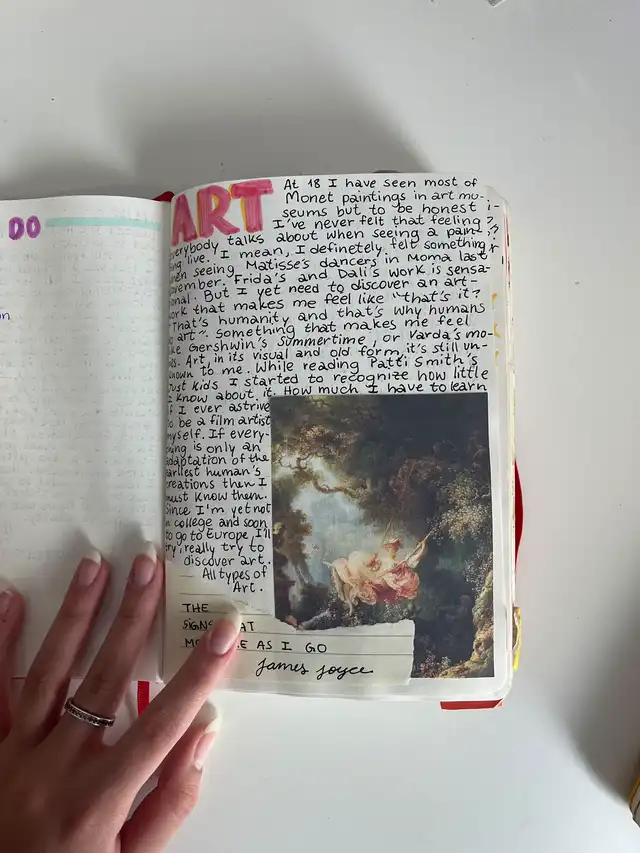 DO
ART
At 18 I have seen most of
Monet paintings in art mu-
seums but to be honest i-
I've never felt that feeling
everybody talks about when seeing a pain-
ting live. I mean, I definetely felt something
when seeing Matisse's dancers in Moma last
november. Frida's and Dali's work is sensa-
tional. But I yet need to discover an art-
work that makes me feel like "that's it?
That's humanity and that's why humans
do art". Something that makes me feel
like Gershwin's Summertime, or Varda's mo-
vies. Art, in its visual and old form, it's still un-
known to me. While reading Patti Smith's
Just Kids I started to recognize how little
I know about it. How much I have to learn
if I ever astrive
to be a film artist
myself. If every-
thing is only an
adaptation of the
earliest human's
creations then I
must know them.
Since I'm yet not
in college and soon
to go to Europe, I'll
try, really try to
discover art.
All types of
Art.
THE
AS I GO
James Joyce